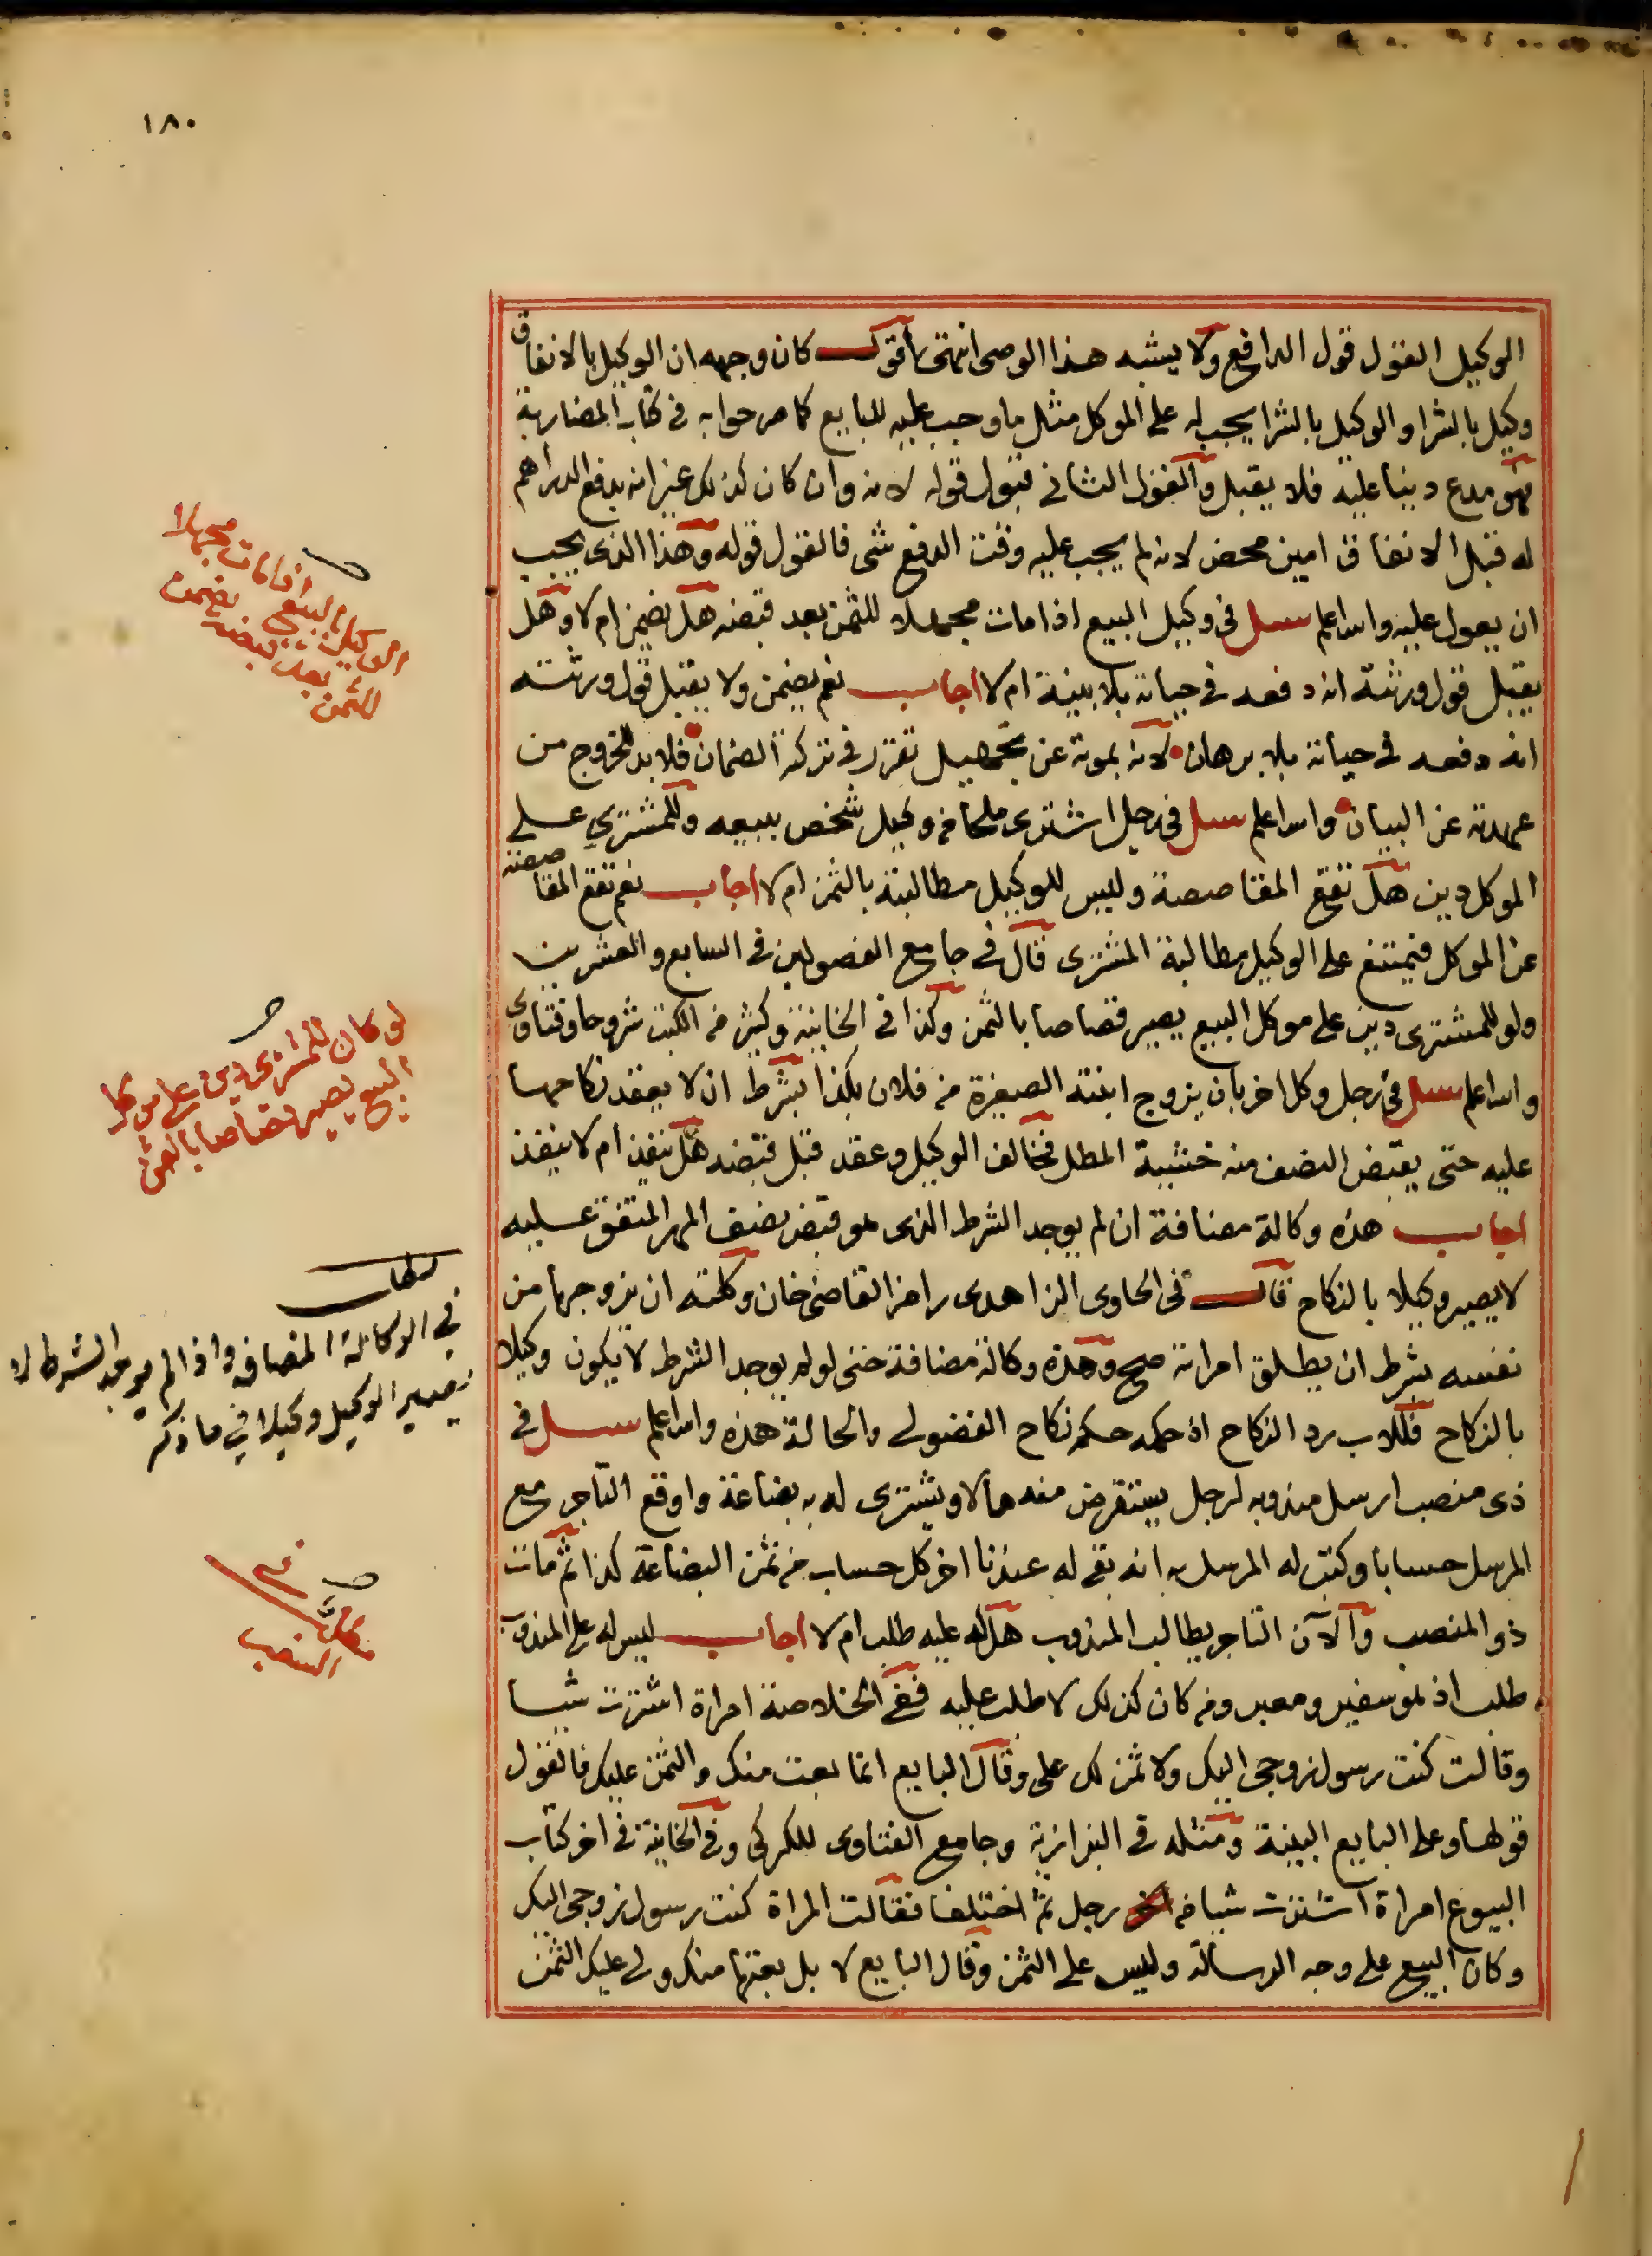 ١٨٠
الوكيل القول قول الدافع ولا يشبه هذا الوصى انتهى أقول كان وجهه ان الوكيل بالانفاق
وكيل بالشرا والوكيل بالشرا يجب له على الموكل مثل ما وجب عليه للبايع كما مر جوابه فى كتاب المضاربة
فهو مدع دينا عليه فلا يقبل والقول الثانى قبول قوله لانه وان كان كذلك غير انه بدفع الدراهم
له قبل الانفاق امين محض لانه لم يجب عليه وقت الدفع شى فالقول قوله وهذا الذى يجب
ان يعول عليه والله اعلم سئل فى وكيل البيع اذا مات مجهلا للثمن بعد قبضه هل يضمن ام لا وهل
يقبل قول ورثته انه دفعه فى حياته بلا بينة ام لا اجاب نعم يضمن ولا يقبل قول ورثته
انه دفعه فى حياته بلا برهان لانه بموته عن تجهيل تقرر فى تركته الضمان فلا بد للخروج من
عهدته عن البيان والله اعلم سئل فى رجل اشترى ملحا من وكيل شخص ببيعه وللمشترى على
الموكل دين هل تقع المقاصصة وليس للوكيل مطالبته بالثمن ام لا اجاب نعم تقع المقاصصة
عن الموكل فيمتنع على الوكيل مطالبة المشترى قال فى جامع الفصولين فى السابع والعشرين
ولو للمشترى دين على موكل البيع يصير قصاصا بالثمن وكذا فى الخانية وكثير من الكتب شروحا وفتاوى
والله اعلم سئل فى رجل وكل اخر بان يزوج ابنته الصغيرة من فلان بكذا بشرط ان لا يعقد نكاحها
عليه حتى يقبض النصف منه خشية المطل فخالف الوكيل وعقد قبل قبضه هل ينفذ ام لا ينفذ
اجاب هذه وكالة مضافة ان لم يوجد الشرط الذى هو قبض نصف المهر المتفق عليه
لا يصير وكيلا بالنكاح قال فى الحاوى الزاهدى رامز القاضى خان وكلته ان يزوجها من
نفسه بشرط ان يطلق امراته صح وهذه وكالة مضافة حتى لو لم يوجد الشرط لا يكون وكيلا
بالنكاح فللاب رد النكاح اذ حكمه حكم نكاح الفضولى والحالة هذه والله اعلم سئل فى
ذى منصب ارسل مندوبه لرجل يستقرض منه مالا ويشترى له به بضاعة واوقع التاجر مع
المرسل حسابا وكتب له المرسل به انه بقى له عندنا اخر كل حساب من ثمن البضاعة كذا ثم مات
ذو المنصب والآن التاجر يطالب المندوب هل له عليه طلب ام لا اجاب ليس له على المندوب
طلب اذ هو سفير ومعبر ومن كان كذلك لا طلب عليه ففى الخلاصة امراة اشترت شيا
وقالت كنت رسول زوجى اليك ولا ثمن لك على وقال البايع انما بعت منك والثمن عليك فالقول
قولها وعلى البايع البينة ومثله فى البزازية وجامع الفتاوى للكركى وفى الخانية فى اخر كتاب
البيوع امراة اشترت شيا من رجل ثم اختلفا فقالت المراة كنت رسول زوجى اليك
وكان البيع على وجه الرسالة وليس على الثمن وقال البايع لا بل بعتها منك ولى عليك الثمن
الوكيل بالبيع اذا مات مجهلا
للثمن بعد قبضه يضمن
لو كان للمشترى دين على موكل
البيع يصير قصاصا بالثمن
مطلب
فى الوكالة المضافة واذا لم يوجد الشرط لا
يصير الوكيل وكيلا فى ما ذكر